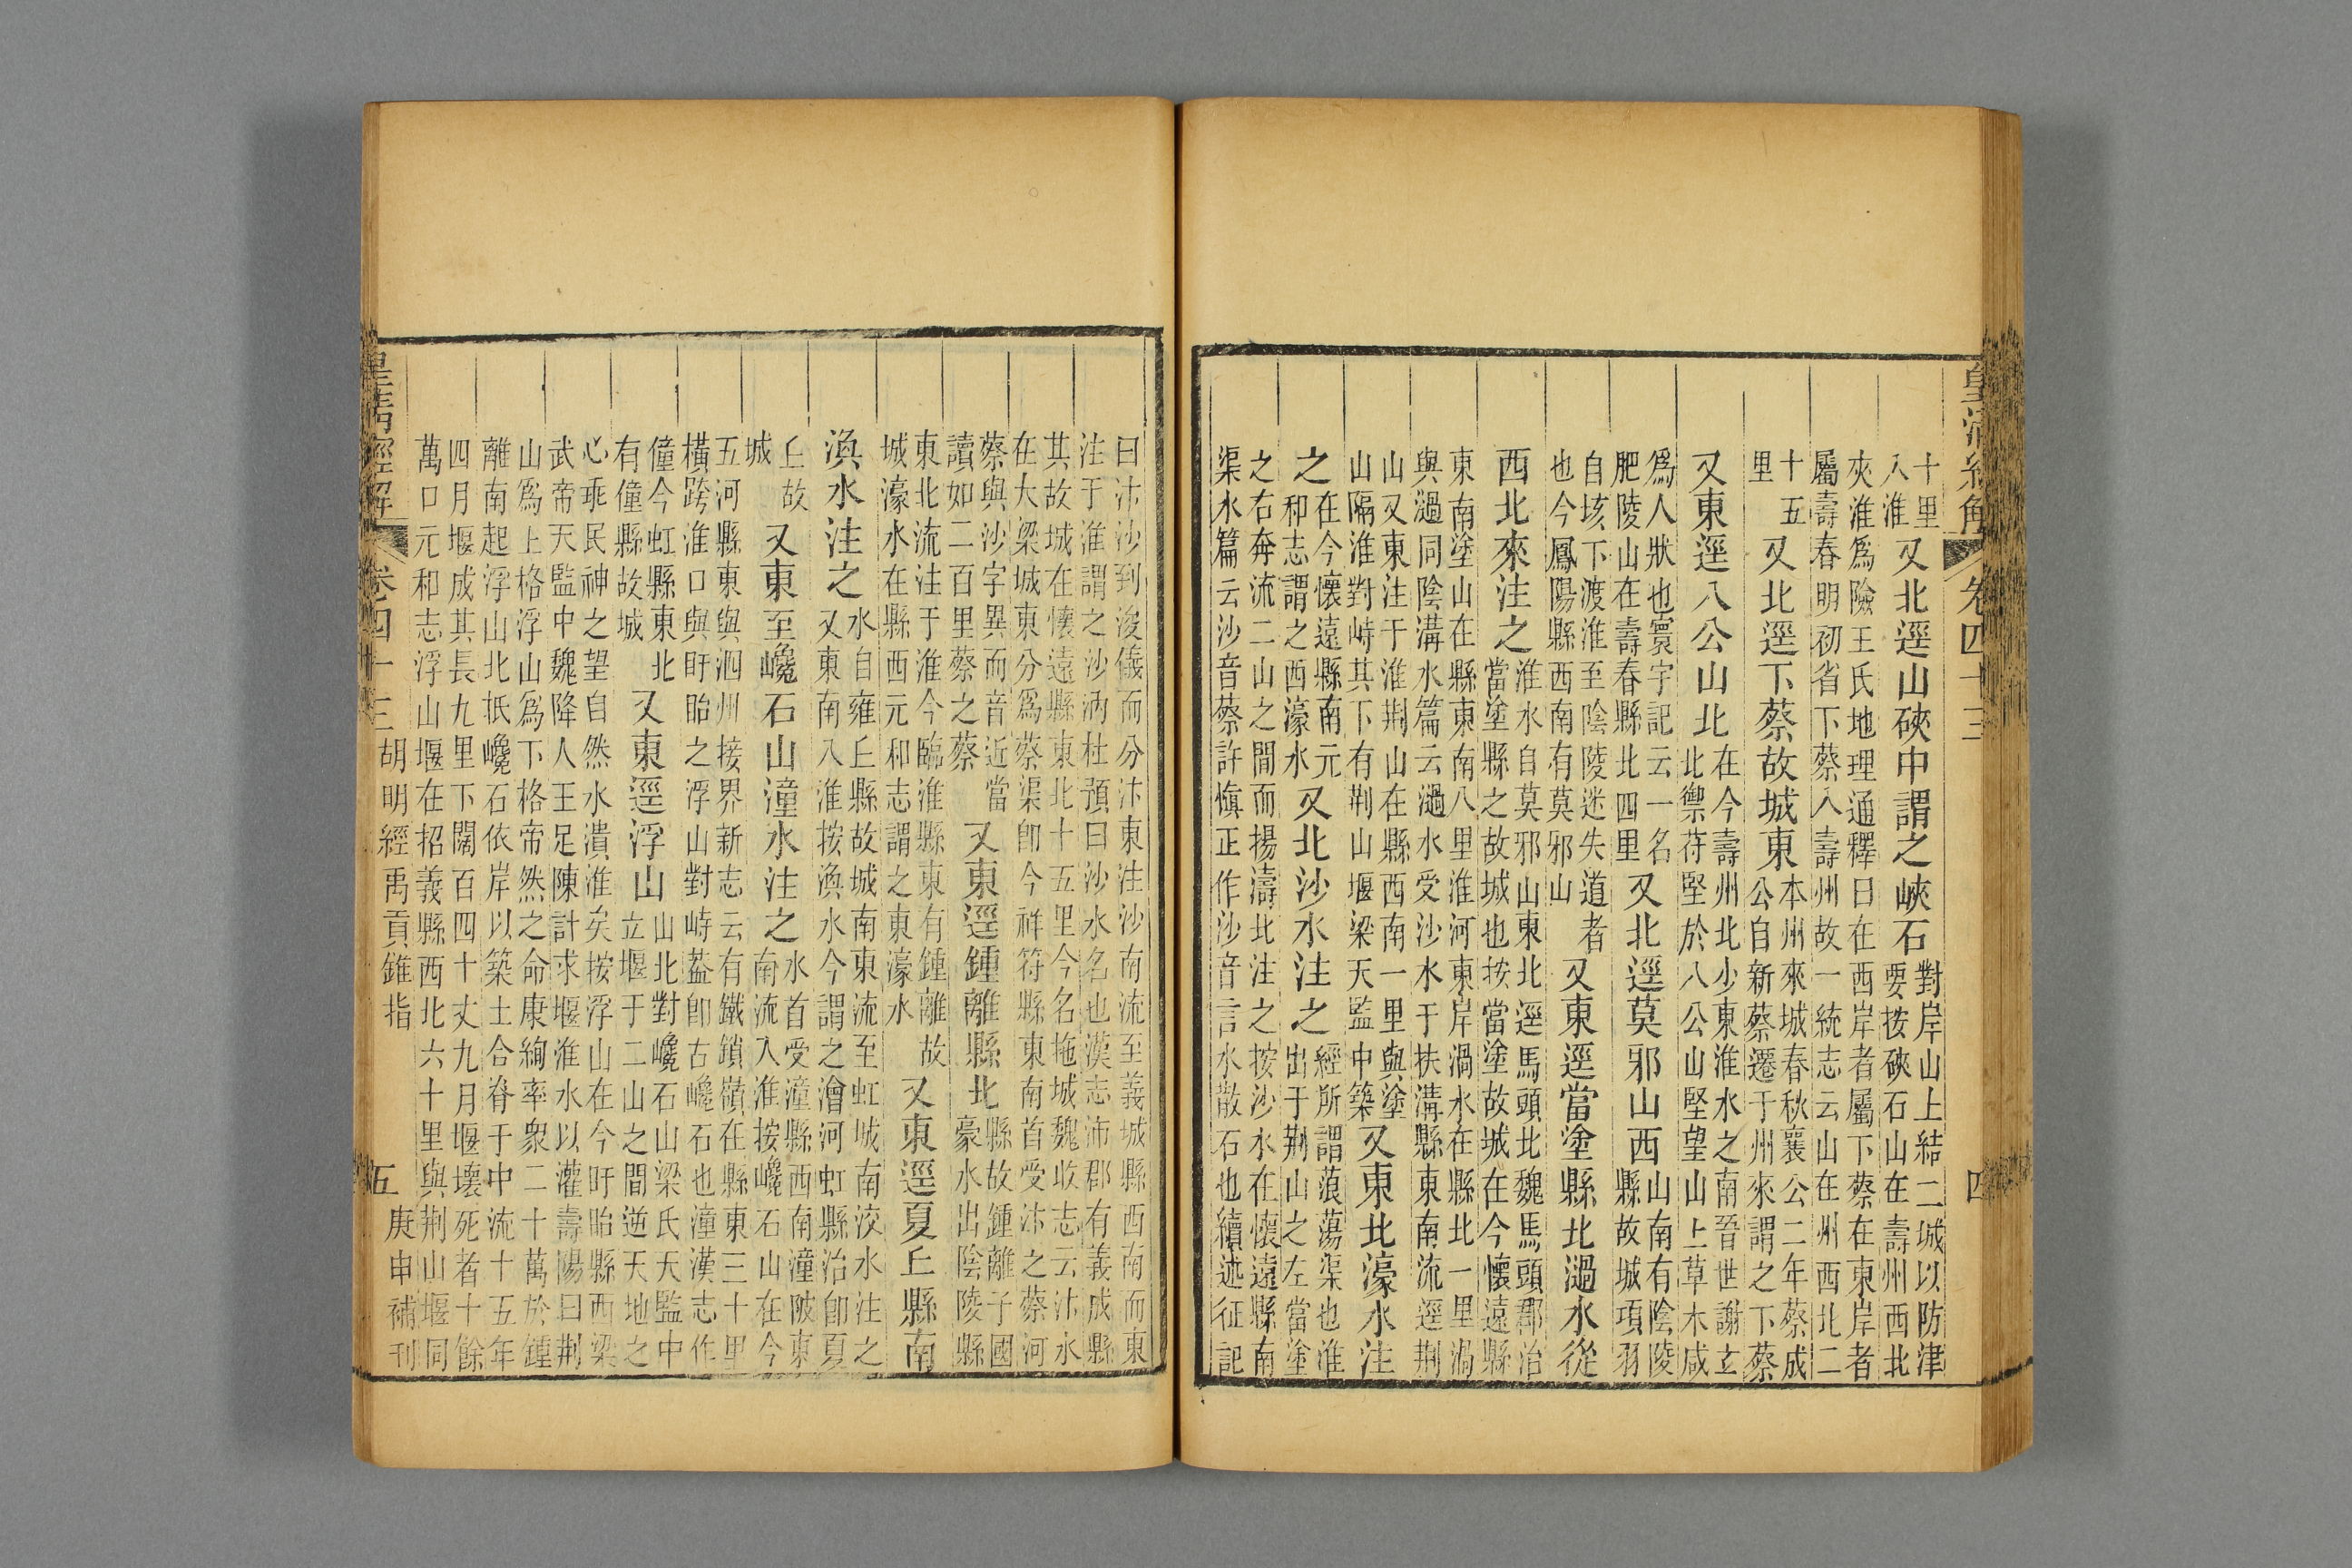 皇清經解 卷四十三 四
十里
入淮
又北逕山硤中謂之峽石
對岸山上結二城以防津
要按硤石山在壽州西北
夾淮爲險王氏地理通釋曰在西岸者屬下蔡在東岸者
屬壽春明初省下蔡入壽州故一統志云山在州西北二
十五
里
又北逕下蔡故城東
本州來城春秋襄公二年蔡成
公自新蔡遷于州來謂之下蔡
又東逕八公山北
在今壽州北少東淮水之南晉世謝玄
北禦苻堅於八公山堅望山上草木咸
爲人狀也寰宇記云一名
肥陵山在壽春縣北四里
又北逕莫邪山西
山南有陰陵
縣故城項羽
自垓下渡淮至陰陵迷失道者
也今鳳陽縣西南有莫邪山
又東逕當塗縣北濄水從
西北來注之
淮水自莫邪山東北逕馬頭北魏馬頭郡治
當塗縣之故城也按當塗故城在今懷遠縣
東南塗山在縣東南八里淮河東岸渦水在縣北一里渦
與濄同陰溝水篇云濄水受沙水于扶溝縣東南流逕荆
山又東注于淮荆山在縣西南一里與塗
山隔淮對峙其下有荆山堰梁天監中築
又東北濠水注
之
在今懷遠縣南元
和志謂之西濠水
又北沙水注之
經所謂蒗蕩渠也淮
出于荆山之左當塗
之右奔流二山之間而揚濤北注之按沙水在懷遠縣南
渠水篇云沙音蔡許愼正作沙音言水散石也續述征記
曰汴沙到浚儀而分汴東注沙南流至義城縣西南而東
注于淮謂之沙汭杜預曰沙水名也漢志沛郡有義成縣
其故城在懷遠縣東北十五里今名拖城魏收志云汴水
在大梁城東分爲蔡渠卽今祥符縣東南首受汴之蔡河
蔡與沙字異而音近當
讀如二百里蔡之蔡
又東逕鍾離縣北
縣故鍾離子國
豪水出陰陵縣
東北流注于淮今臨淮縣東有鍾離故
城濠水在縣西元和志謂之東濠水
又東逕夏丘縣南
渙水注之
水自雍丘縣故城南東流至虹城南洨水注之
又東南入淮按渙水今謂之澮河虹縣治卽夏
丘故
城
又東至巉石山潼水注之
水首受潼縣西南潼陂東
南流入淮按巉石山在今
五河縣東與泗州接界新志云有鐵鎖嶺在縣東三十里
橫跨淮口與盱眙之浮山對峙葢卽古巉石也潼漢志作
僮今虹縣東北
有僮縣故城
又東逕浮山
山北對巉石山梁氏天監中
立堰于二山之間逆天地之
心乖民神之望自然水潰淮矣按浮山在今盱眙縣西梁
武帝天監中魏降人王足陳計求堰淮水以灌壽陽曰荆
山爲上格浮山爲下格帝然之命康絢率衆二十萬於鍾
離南起浮山北抵巉石依岸以築土合脊于中流十五年
四月堰成其長九里下闊百四十丈九月堰壞死者十餘
萬口元和志浮山堰在招義縣西北六十里與荆山堰同
皇清經解 卷四十三 胡明經禹貢錐指 五 庚申補刊